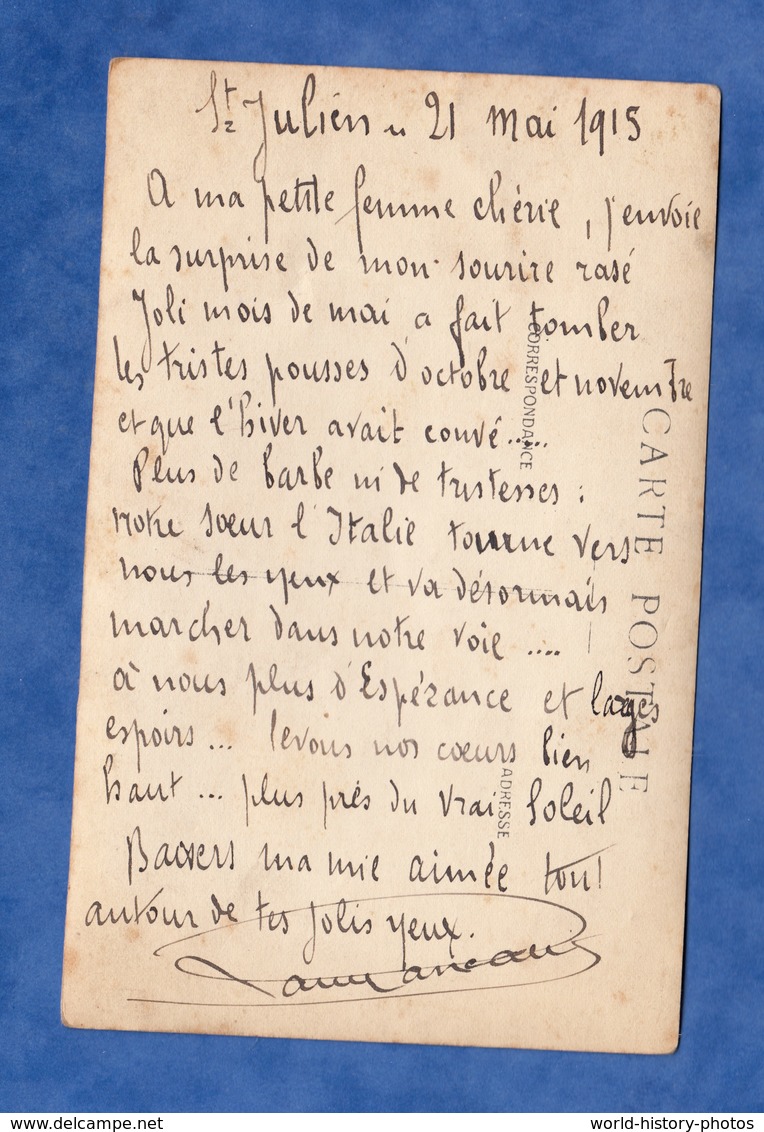 St Julien 21 Mai 1915
A ma petite femme chérie, j'envoie
la surprise de mon sourire rasé
Joli mois de mai a fait tomber
les tristes pousses d'octobre et novembre
et que l'hiver avait couvé.....
Plus de barbe ni de tristesses :
notre sœur l'Italie tourne vers
nous les yeux et va désormais
marcher dans notre voie ....
à nous plus d'Espérance et larges
espoirs ... levons nos cœurs bien
haut ... plus près du vrai Soleil
Baisers ma mie aimée tout
autour de tes jolis yeux.
CORRESPONDANCE
CARTE POSTALE
ADRESSE
www.delcampe.net
world-history-photos